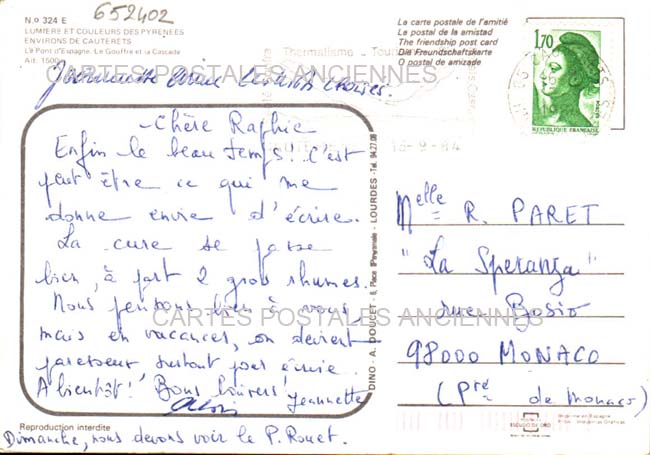 652402
N.º 324 E
LUMIERE ET COULEURS DES PYRENEES
ENVIRONS DE CAUTERETS
Le Pont d'Espagne. Le Gouffre et la Cascade
Alt. 1500
La carte postale de l'amitié
La postal de la amistad
The friendship post card
Die Freundschaftskarte
O postal de amizade
1,70
REPUBLIQUE FRANÇAISE
Thermalisme
CARTES POSTALES ANCIENNES
Chère Raphie
Enfin le beau temps! C'est
peut être ce qui me
donne envie d'écrire.
La cure se passe
bien, à part 2 gros rhumes.
Nous pensons bien à vous
mais en vacances, on devient
paresseux surtout pour écrire.
A bientôt! Bons loisirs!
Jeannette
Dimanche, nous devons voir le P. Rouet.
DINO - A. DOUCET - 6, Place Peyramale - LOURDES - Tel. 94.27.08
Melle R. PARET
"La Speranza"
rue Bosio
98000 MONACO
(Pté de Monaco)
CARTES POSTALES ANCIENNES
Reproduction interdite
ESCUDO DE ORO